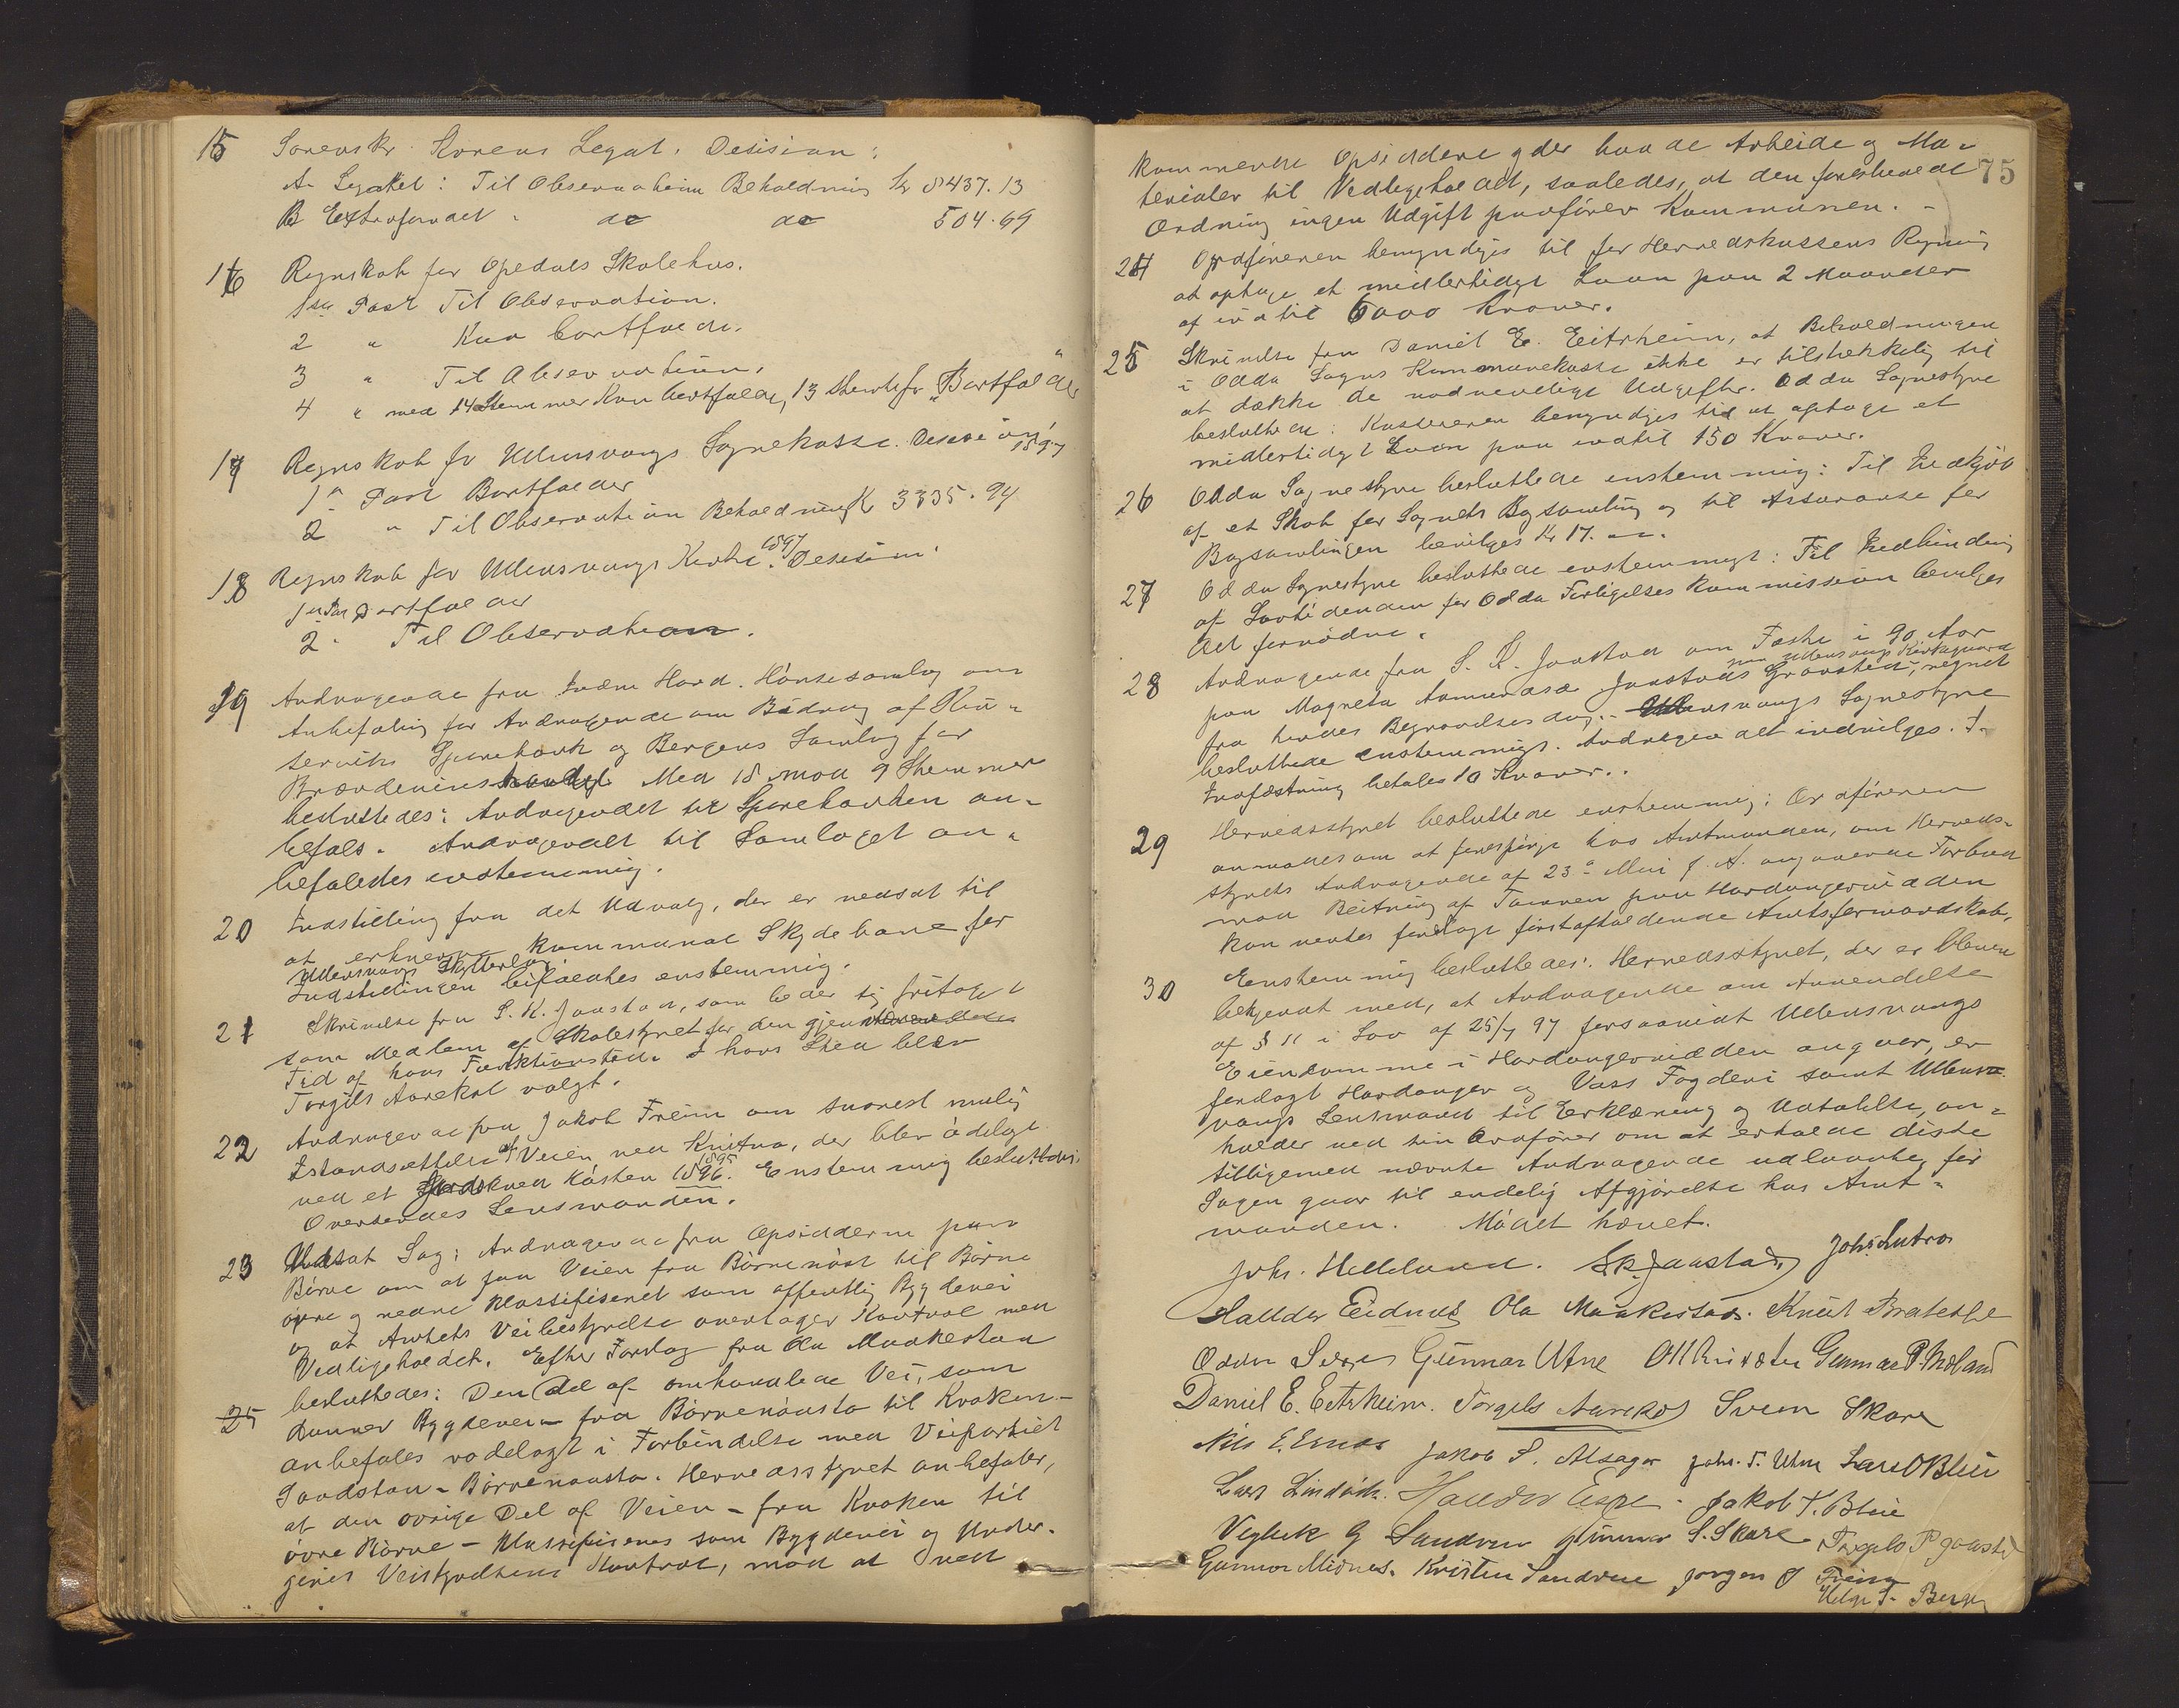 15 Sorenskr. Korens Legat. Desision:
A. Legatet: Til Observasheim Beholdning Kr 8437.13
B Extrafondet " do do 504.69
16 Regnskab for Opedals Skolehus.
1ste Post Til Observation.
2 " Kan bortfalde.
3 " Til Observation.
4 " med 14 Stemmer Kan bortfalde, 13 Stemte for "Bortfalder"
17 Regnskab for Ullensvangs Sognekasse. Desision: 1897
1ste Post Bortfalder
2 " Til Observation Beholdning Kr 3335.94
18 Regnskab for Ullensvangs Kirke 1897. Desision:
1ste Post Bortfalder
2. Til Observation.
19 Andragende fra Indre Hard. Hønsesamlag om
Anbefaling for Andragende om Bidrag af Kin-
serviks Sparebank og Bergens Samlag for
Brændevinshandel. Med 18 mod 9 Stemmer
besluttedes: Andragendet til Sparebanken an-
befales. Andragendet til Samlaget an-
befaledes enstemmig.
20 Indstilling fra det Udvalg, der er nedsat til
at erkjende kommunal Skydebane for
Ullensvangs Skytterlag.
Indstillingen bifaldtes enstemmig.
21 Skrivelse fra S. K. Jaastad, som beder sig fritaget
som Medlem af Skolestyret for den gjenværende
Tid af hans Funktionstid. I hans Sted blev
Torgils Aarekol valgt.
22 Andragende fra Jakob Freim om snarest mulig
Istandsættelse af Veien ved Knitna, der blev ødelagt
ved et Jordskred Høsten 1896. 1895 Enstemmig besluttedes:
Oversendes Lensmanden.
23 Udsat Sag: Andragende fra Opsidderne paa
Børve om at faa Veien fra Børvenøst til Børve
øvre og nedre klassifiseret som offentlig Bygdevei
og at Amtets Veibestyrelse overtager Kontrol med
Vedligeholdet. Efter Forslag fra Ola Maakestad
besluttedes: Den Del af omhandlede Vei, som
25 danner Bygdevei – fra Børvenøusta til Kroken –
anbefales rodelagt i Forbindelse med Veipartiet
Sandstøu – Børvenousta. Herredsstyret anbefaler,
at den øvrige Del af Veien – fra Kroken til
øvre Børve – klassifiseres som Bygdevei og Under-
gives Veistyrelsens Kontrol, mod at ved
75
kommende Opsiddere yder baade Arbeide og Ma-
terialer til Vedligeholdet, saaledes, at den foreslaaede
Ordning ingen Udgift paafører Kommunen. –
24 Ordføreren bemyndiges til for Herredskassens Regning
at optage et midlertidigt Laan paa 2 Maaneder
af indtil 6000 Kroner.
25 Skrivelse fra Daniel E. Eitrheim, at Beholdningen
i Odda Sogns Kommunekasse ikke er tilstrækkelig til
at dække de nødvendige Udgifter. Odda Sognestyre
besluttede: Kassereren bemyndiges til at optage et
midlertidigt Laan paa indtil 150 Kroner.
26 Odda Sognestyre besluttede enstemmig: Til Indkjøb
af et Skab for Sognets Bogsamling og til Assurance for
Bogsamlingen bevilges Kr 17. –
27 Odda Sognestyre besluttede enstemmigt: Til Indbinding
af Lovtidenden for Odda Forligelseskommission bevilges
det fornødne.
28 Andragende fra S. K. Jaastad om Fæste i 90 Aar
paa Magreta Jaastads Gravsted, paa Ullensvangs Kirkegaard regnet
fra hendes Begravelsesdag. – Ullensvangs Sognestyre
besluttede enstemmigt. Andragendet indvilges. I
Indfæstning betales 10 Kroner.
29 Herredsstyret besluttede enstemmig: Ordføreren
anmodes om at forespørge hos Amtmanden, om Herreds-
styrets Andragende af 23de Mai f. A. angaaende Forbud
mod Beitning af Tamren paa Hardangervidden
kan ventes forelagt førstafholdende Amtsformandskab.
30 Enstemmig besluttedes: Herredsstyret, der er bleven
bekjendt med, at Andragende om Anvendelse
af § 11 i Lov af 25/7 97 forsaavidt Ullensvangs
Eiendomme i Hardangervidden angaar, er
forelagt Hardanger og Voss Fogderi samt Ullens-
vangs Lensmand til Erklæring og Udtalelse, an-
holder ved sin Ordfører om at erholde disse
tilligemed nævnte Andragende udlaante, før
Sagen gaar til endelig Afgjørelse hos Amt-
manden. Mødet hævet.
Johs. Helleland. S. K. Jaastad, Johs. Lutro
Halldor Eidnes Ola Maakestad. Knut Bratespe
Odden Sexe Gunnar Utne Gunnar P. Mæland
Daniel E. Eitrheim. Torgils Aarekol Svein Skare
Nils E. Ernes Jakob S. Alsager Johs. T. Utne Lars O Bleie
Lars Lindvik. Halldor Espe. Jakob T. Bleie
Vigleik G Sandven Gunnar S. Skare Torgils P Jaastad
Gunnar Midnes. Kristen Sandven Jørgen J Freim
Helge T. Berge